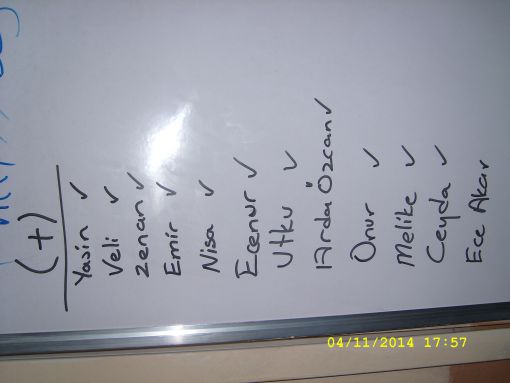 (+)
Yasin ✓
Veli ✓
Zenan ✓
Emir ✓
Nisa ✓
Ecenur ✓
Utku ✓
Arda Özcan ✓
Onur ✓
Melike ✓
Ceyda ✓
Ece Akar
04/11/2014 17:57